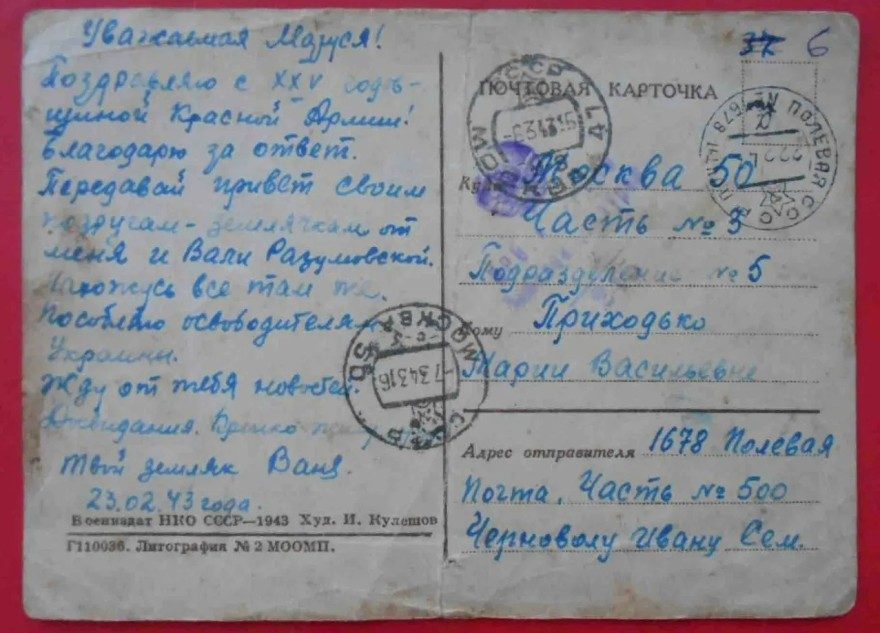 Уважаемая Маруся!
Поздравляю с XXV годов-
щиной Красной Армии!
Благодарю за ответ.
Передавай привет своим
подругам-землячкам от
меня и Вали Разумовской.
Нахожусь все там же.
Пособляю освободителям
Украины.
Жду от тебя новостей.
До свидания. Крепко жму
Твой земляк Ваня.
23.02.43 года.
Воениздат НКО СССР—1943 Худ. И. Кулешов
Г110036. Литография № 2 МООМП.
37 6
ПОЧТОВАЯ КАРТОЧКА
Куда Москва 50
Часть № 3
Подразделение № 5
Кому Приходько
Марии Васильевне
Адрес отправителя 1678 Полевая
Почта. Часть № 500
Черноволу Ивану Сем.
СССР МОСКВА 47
ПОЛЕВАЯ ПОЧТА № 1678 СССР
МОСКВА 50 СССР
-7.3.43.16